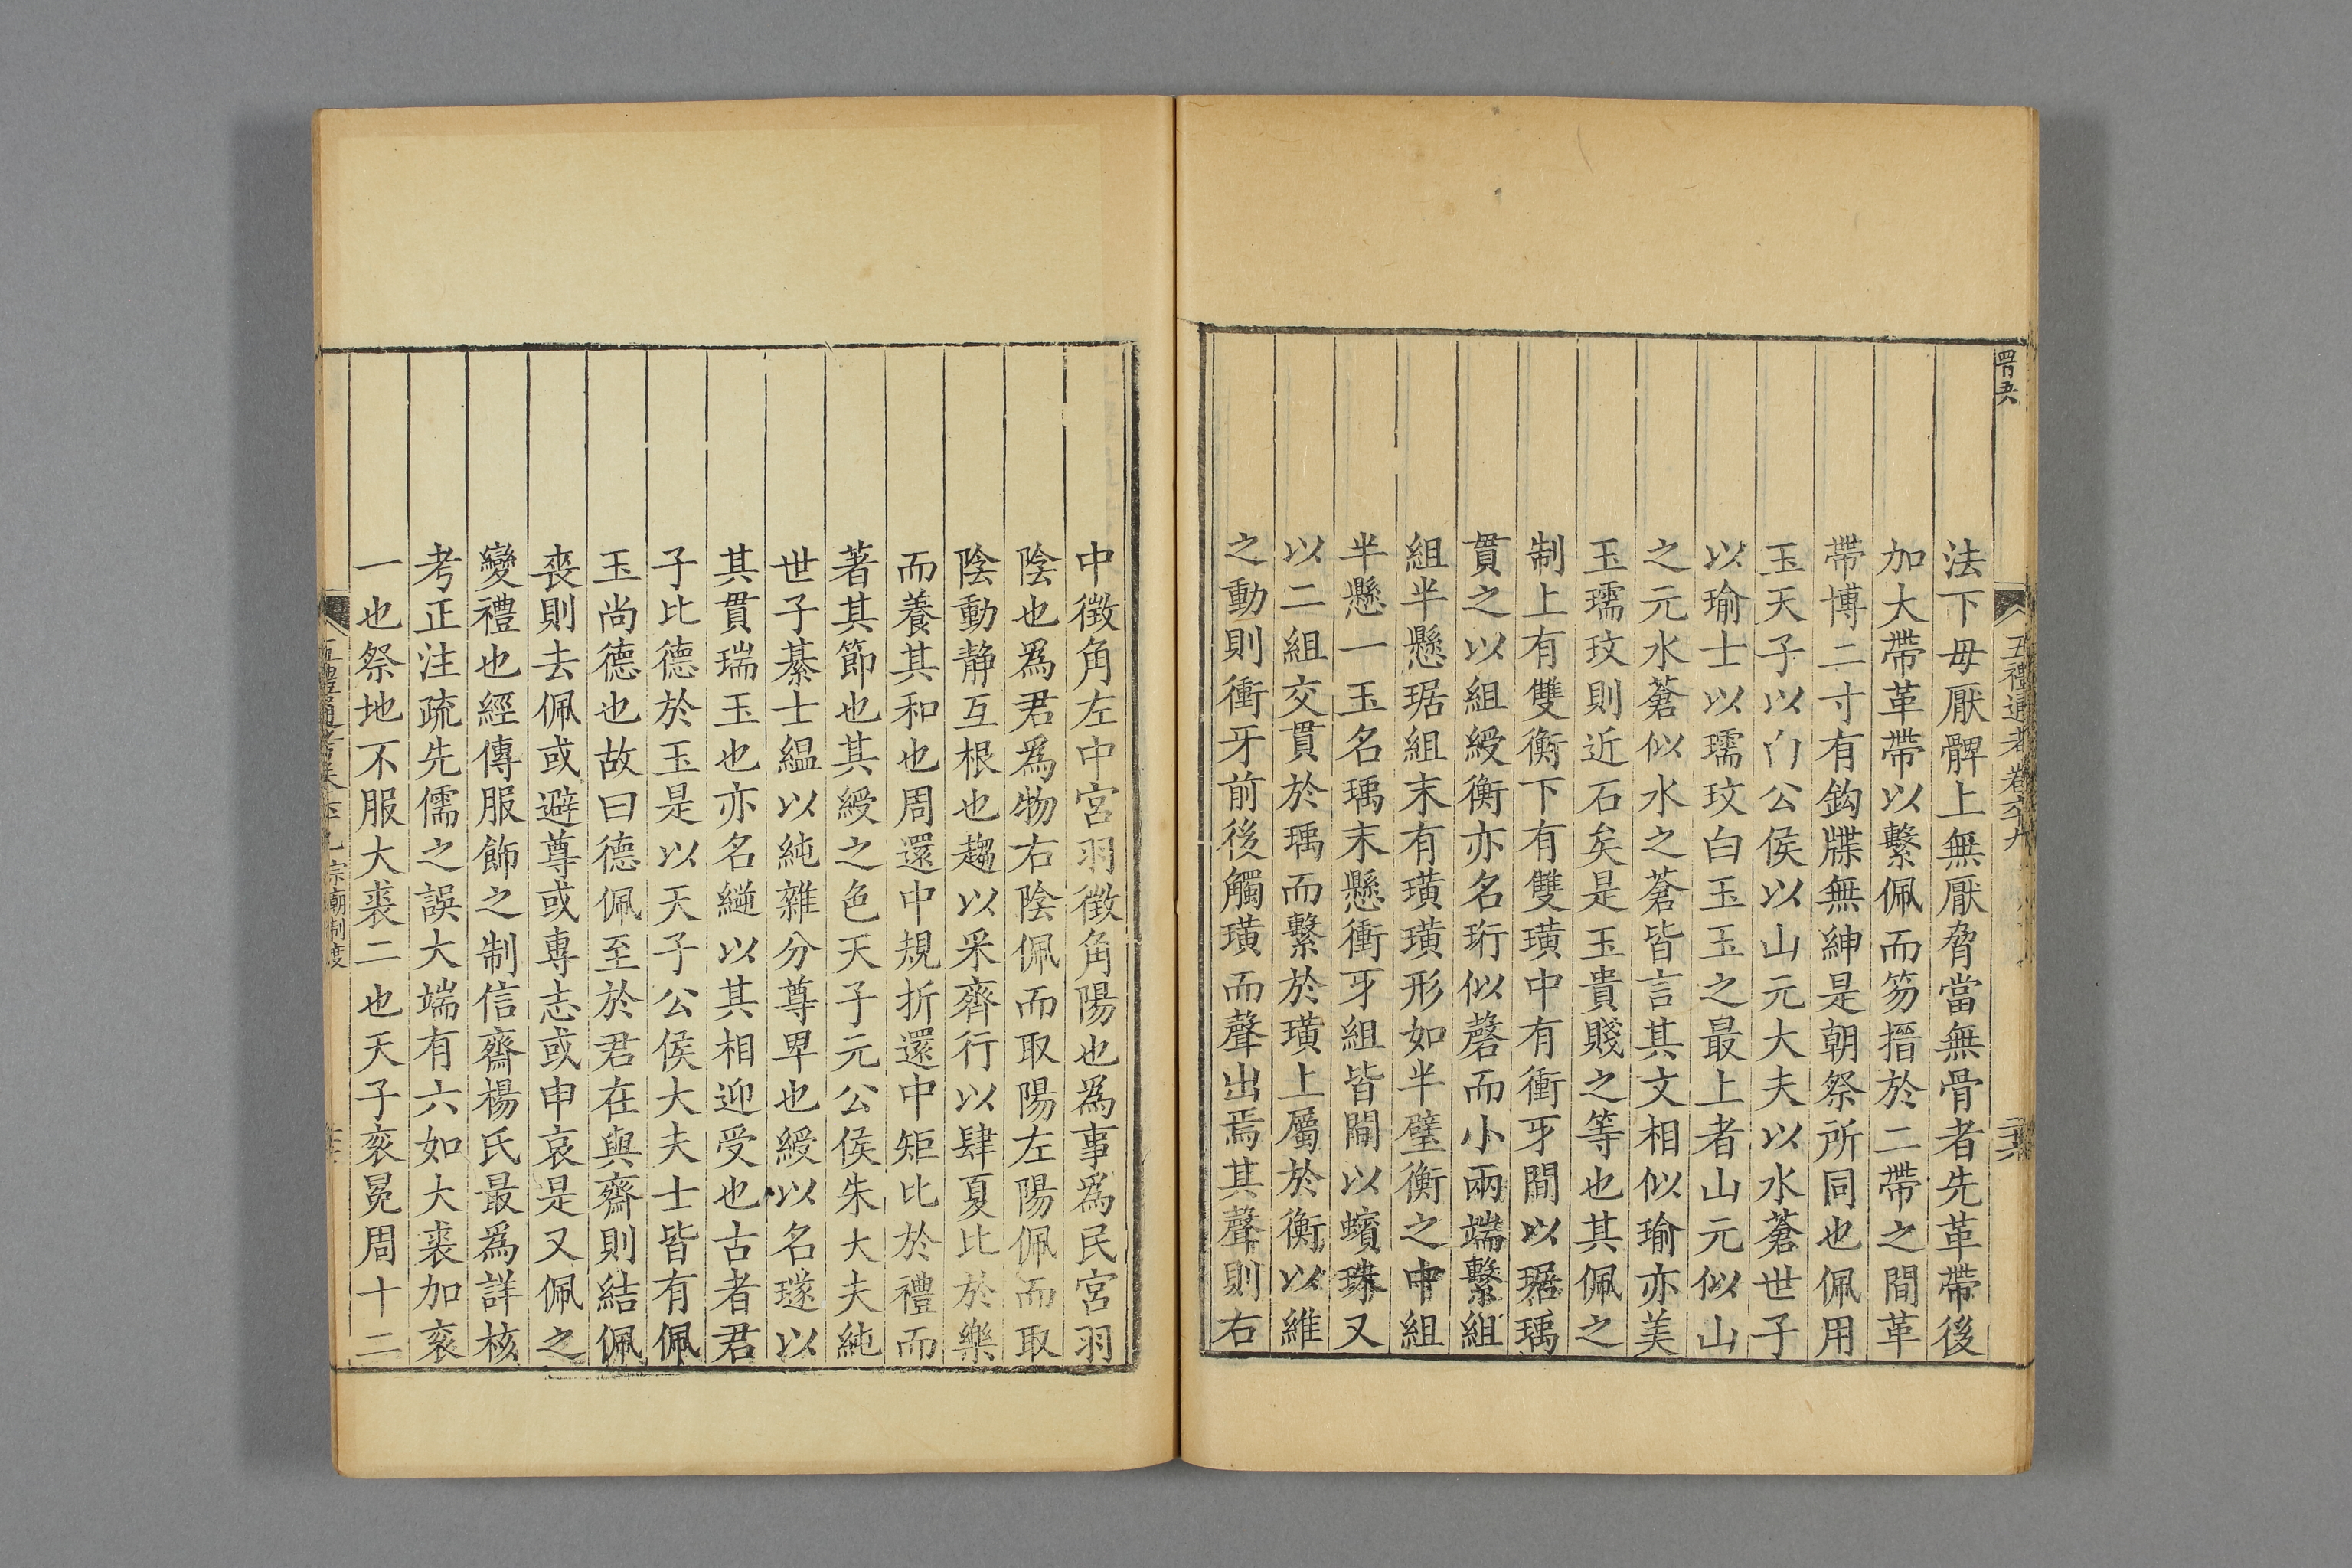 五禮通考卷六十九
法下毋厭髀上無厭脅當無骨者先革帶後
加大帶革帶以繫佩而笏搢於二帶之間革
帶博二寸有鈎牒無紳是朝祭所同也佩用
玉天子以白公侯以山元大夫以水蒼世子
以瑜士以瓀玟白玉玉之最上者山元似山
之元水蒼似水之蒼皆言其文相似瑜亦美
玉瓀玟則近石矣是玉貴賤之等也其佩之
制上有雙衡下有雙璜中有衝牙間以琚瑀
貫之以組綬衡亦名珩似磬而小兩端繫組
組半懸琚組末有璜璜形如半璧衡之中組
半懸一玉名瑀末懸衝牙組皆間以蠙珠又
以二組交貫於瑀而繫於璜上屬於衡以維
之動則衝牙前後觸璜而聲出焉其聲則右
中徵角左中宮羽徵角陽也爲事爲民宮羽
陰也爲君爲物右陰佩而取陽左陽佩而取
陰動静互根也趨以采齊行以肆夏比於樂
而養其和也周還中規折還中矩比於禮而
著其節也其綬之色天子元公侯朱大夫純
世子綦士縕以純雜分尊卑也綬以名璲以
其貫瑞玉也亦名繸以其相迎受也古者君
子比德於玉是以天子公侯大夫士皆有佩
玉尚德也故曰德佩至於君在與齋則結佩
喪則去佩或避尊或專志或申哀是又佩之
變禮也經傳服飾之制信齋楊氏最爲詳核
考正注疏先儒之誤大端有六如大裘加袞
一也祭地不服大裘二也天子袞冕周十二
宗廟制度